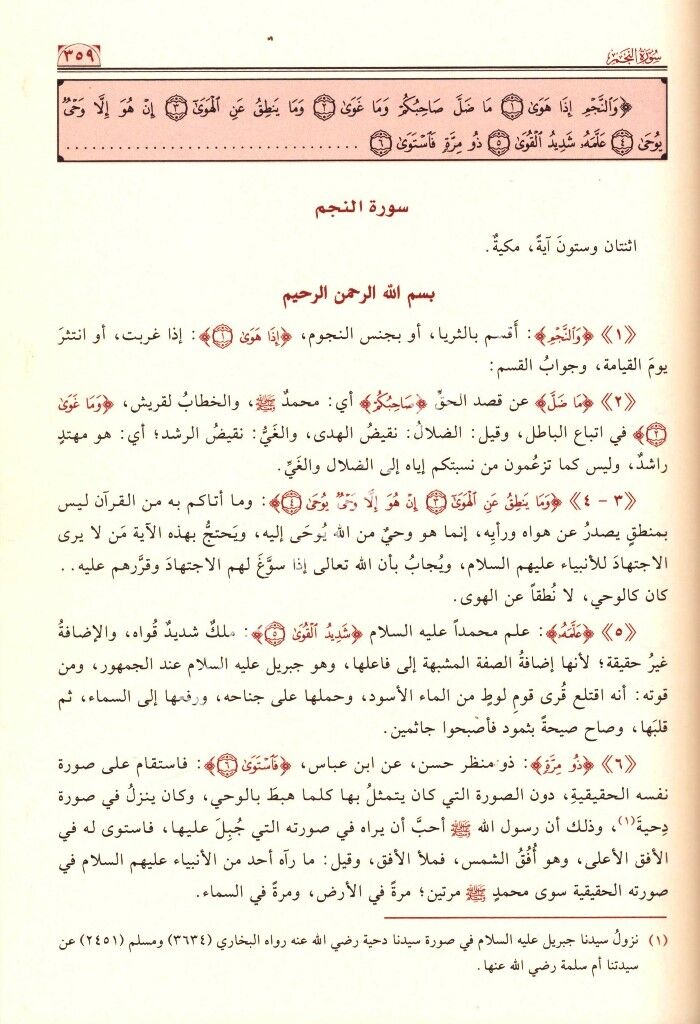 سورة النجم
٣٥٩
﴿وَالنَّجْمِ إِذَا هَوَىٰ ١ مَا ضَلَّ صَاحِبُكُمْ وَمَا غَوَىٰ ٢ وَمَا يَنطِقُ عَنِ الْهَوَىٰ ٣ إِنْ هُوَ إِلَّا وَحْيٌ
يُوحَىٰ ٤ عَلَّمَهُ شَدِيدُ الْقُوَىٰ ٥ ذُو مِرَّةٍ فَاسْتَوَىٰ ٦ ........................................
سورة النجم
اثنتان وستونَ آيةً، مكيةٌ.
بسم الله الرحمن الرحيم
﴿١﴾ ﴿وَالنَّجْمِ﴾: أَقسم بالثريا، أو بجنس النجوم، ﴿إِذَا هَوَىٰ ١﴾: إذا غربت، أو انتثرَ
يومَ القيامة، وجوابُ القسم:
﴿٢﴾ ﴿مَا ضَلَّ﴾ عن قصد الحقِّ ﴿صَاحِبُكُمْ﴾ أي: محمدٌ ﷺ، والخطابُ لقريش، ﴿وَمَا غَوَىٰ
٢﴾ في اتباع الباطل، وقيل: الضلالُ: نقيضُ الهدى، والغَيُّ: نقيضُ الرشد؛ أي: هو مهتدٍ
راشدٌ، وليس كما تزعُمون من نسبتكم إياه إلى الضلال والغَيِّ.
﴿٣ - ٤﴾ ﴿وَمَا يَنطِقُ عَنِ الْهَوَىٰ ٣ إِنْ هُوَ إِلَّا وَحْيٌ يُوحَىٰ ٤﴾: وما أتاكم به من القرآن ليس
بمنطقٍ يصدرُ عن هواه ورأيِه، إنما هو وحيٌ من الله يُوحَى إليه، ويَحتجُّ بهذه الآية مَن لا يرى
الاجتهادَ للأنبياء عليهم السلام، ويُجابُ بأن الله تعالى إذا سوَّغَ لهم الاجتهادَ وقرَّرهم عليه..
كان كالوحي، لا نُطقاً عن الهوى.
﴿٥﴾ ﴿عَلَّمَهُ﴾: علم محمداً عليه السلام ﴿شَدِيدُ الْقُوَىٰ ٥﴾: ملكٌ شديدٌ قُواه، والإضافةُ
غيرُ حقيقة؛ لأنها إضافةُ الصفة المشبهة إلى فاعلها، وهو جبريل عليه السلام عند الجمهور، ومن
قوته: أنه اقتلع قُرى قومِ لوطٍ من الماء الأسود، وحملها على جناحه، ورفعها إلى السماء، ثم
قلبَها، وصاح صيحةً بثمود فأصبحوا جاثمين.
﴿٦﴾ ﴿ذُو مِرَّةٍ﴾: ذو منظر حسن، عن ابن عباس، ﴿فَاسْتَوَىٰ ٦﴾: فاستقام على صورة
نفسه الحقيقيةِ، دون الصورة التي كان يتمثلُ بها كلما هبطَ بالوحي، وكان ينزلُ في صورة
دِحيةَ(١)، وذلك أن رسول الله ﷺ أحبَّ أن يراه في صورته التي جُبِلَ عليها، فاستوى له في
الأفق الأعلى، وهو أُفُقُ الشمس، فملأ الأفق، وقيل: ما رآه أحد من الأنبياء عليهم السلام في
صورته الحقيقية سوى محمدٍ ﷺ مرتين؛ مرةً في الأرض، ومرةً في السماء.
(١) نزولُ سيدنا جبريل عليه السلام في صورة سيدنا دحية رضي الله عنه رواه البخاري (٣٦٣٤) ومسلم (٢٤٥١) عن
سيدتنا أم سلمة رضي الله عنها.